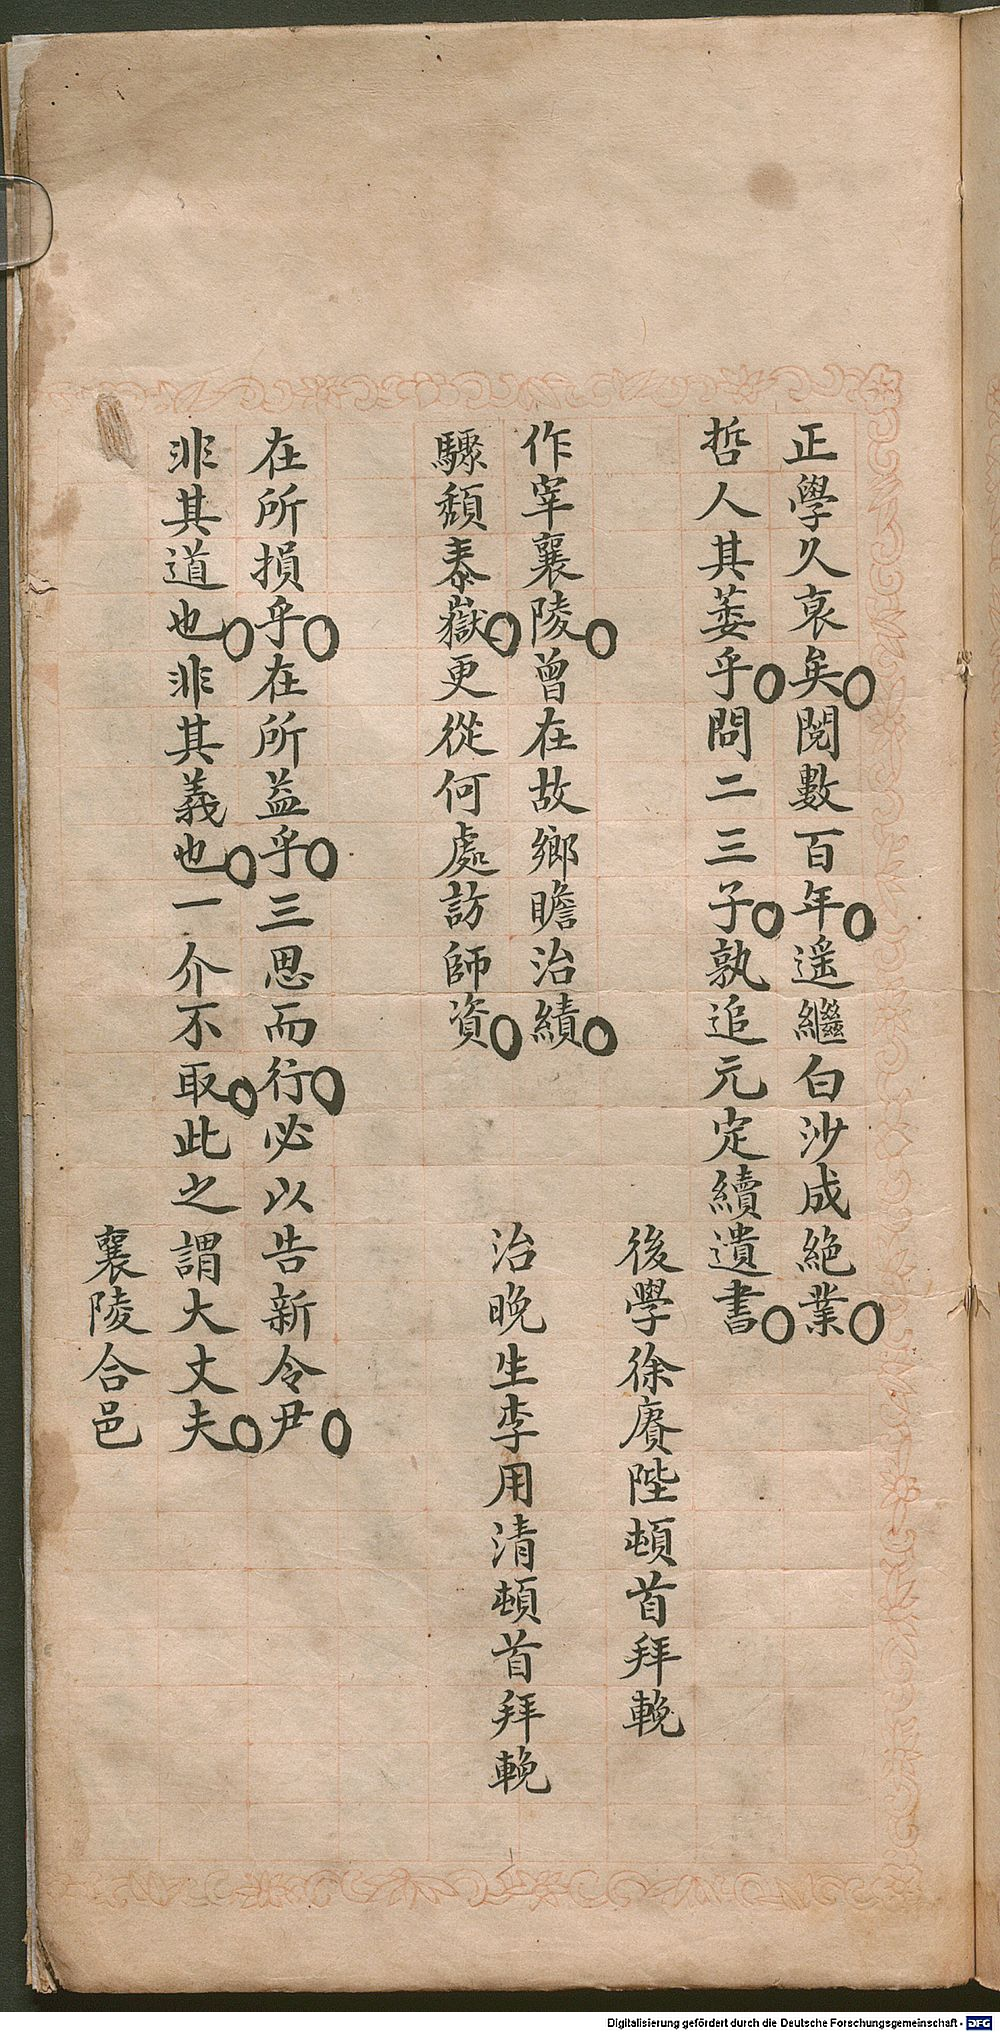 正學久衷矣〇閱數百年〇遥繼白沙成絶業〇
哲人其萎乎〇問二三子〇孰追元定續遺書〇
後學徐賡陛頓首拜輓
作宰襄陵〇曾在故鄉瞻治績〇
驟頹泰嶽〇更從何處訪師資〇
治晚生李用清頓首拜輓
在所損乎〇在所益乎〇三思而行〇必以告新令尹〇
非其道也〇非其義也〇一介不取〇此之謂大丈夫〇
襄陵合邑
Digitalisierung gefördert durch die Deutsche Forschungsgemeinschaft - DFG